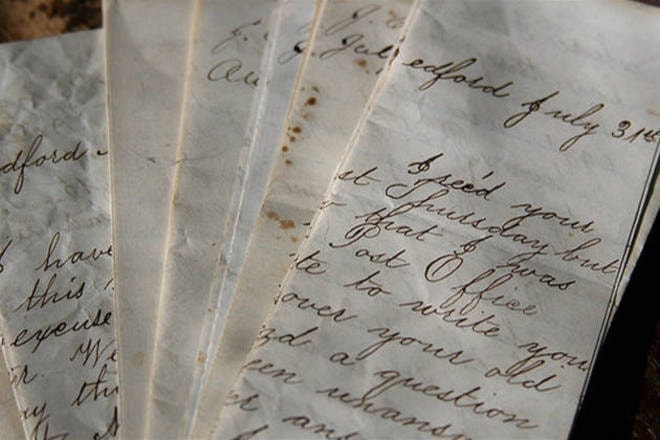 dford
I have
this
excuse
r. We
ay thi
Au
Jul
edford July 31st
I rec'd your
st Thursday but
r that I was
Post Office
te to write you
over your old
nd a question
een unansw
er and